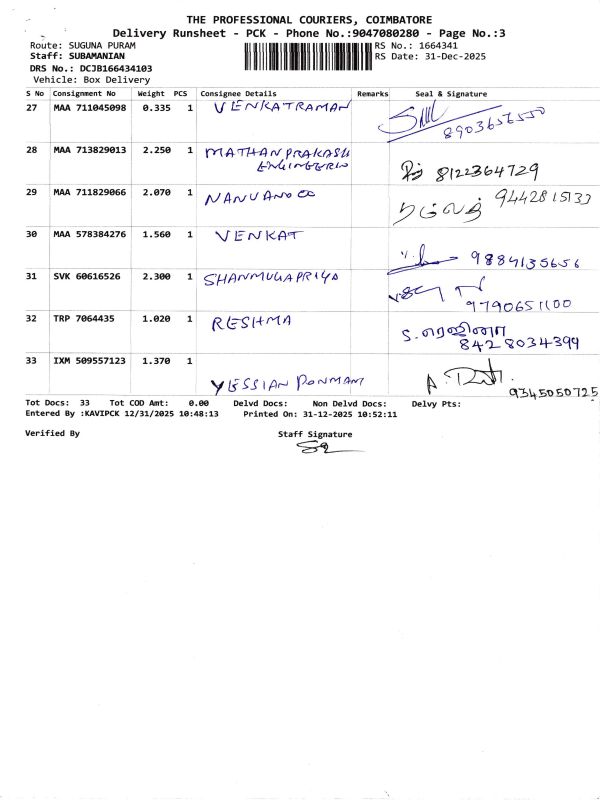 THE PROFESSIONAL COURIERS, COIMBATORE
Delivery Runsheet - PCK - Phone No.:9047080280 - Page No.:3
Route: SUGUNA PURAM
RS No.: 1664341
Staff: SUBAMANIAN
RS Date: 31-Dec-2025
DRS No.: DCJB166434103
Vehicle: Box Delivery
S No Consignment No Weight PCS Consignee Details Remarks Seal & Signature
27 MAA 711045098 0.335 1 VENKATRAMAN
8903656550
28 MAA 713829013 2.250 1 MATHAN PRAKASH
8122364729
29 MAA 711829066 2.070 1
9442815133
30 MAA 578384276 1.560 1 VENKAT
9884135656
31 SVK 60616526 2.300 1 SHANMUGAPRIYA
9790651100
32 TRP 7064435 1.020 1 RESHMA
8428034399
33 IXM 509557123 1.370 1
9345050725
Tot Docs: 33 Tot COD Amt: 0.00 Delvd Docs: Non Delvd Docs: Delvy Pts:
Entered By :KAVIPCK 12/31/2025 10:48:13 Printed On: 31-12-2025 10:52:11
Verified By Staff Signature